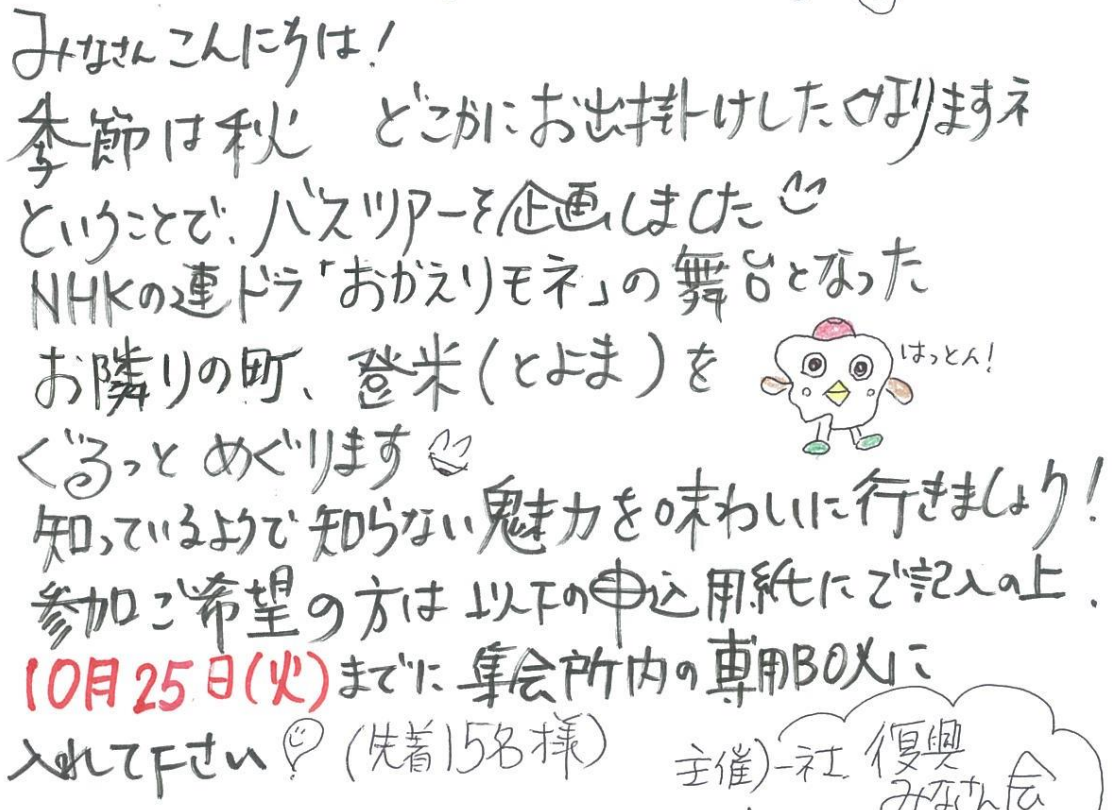 みなさんこんにちは!
季節は秋 どこかにお出掛けしたくなりますネ
ということで、バスツアーを企画しました
NHKの連ドラ「おかえりモネ」の舞台となった
お隣りの町、登米(とよま)を
はっとん!
ぐるっとめぐります
知っているようで知らない魅力を味わいに行きましょう!
参加ご希望の方は以下の申込用紙にご記入の上、
10月25日(火)までに集会所内の専用BOXに
入れて下さい (先着15名様)
主催)一社.復興
みなさん会